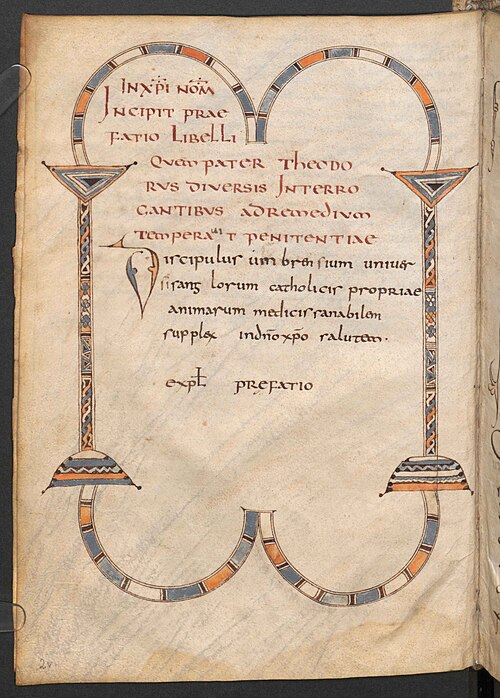 IN XPI NOM
INCIPIT PRAE
FATIO LIBELLI
QUEM PATER THEODO
RUS DIVERSIS INTERRO
GANTIBUS AD REMEDIUM
TEMPERAUIT PENITENTIAE
Discipulus umbrensium univer
sis anglorum catholicis propriae
animarum medicis sanabilem
supplex in dno xpo salutem.
expl prefatio
2v